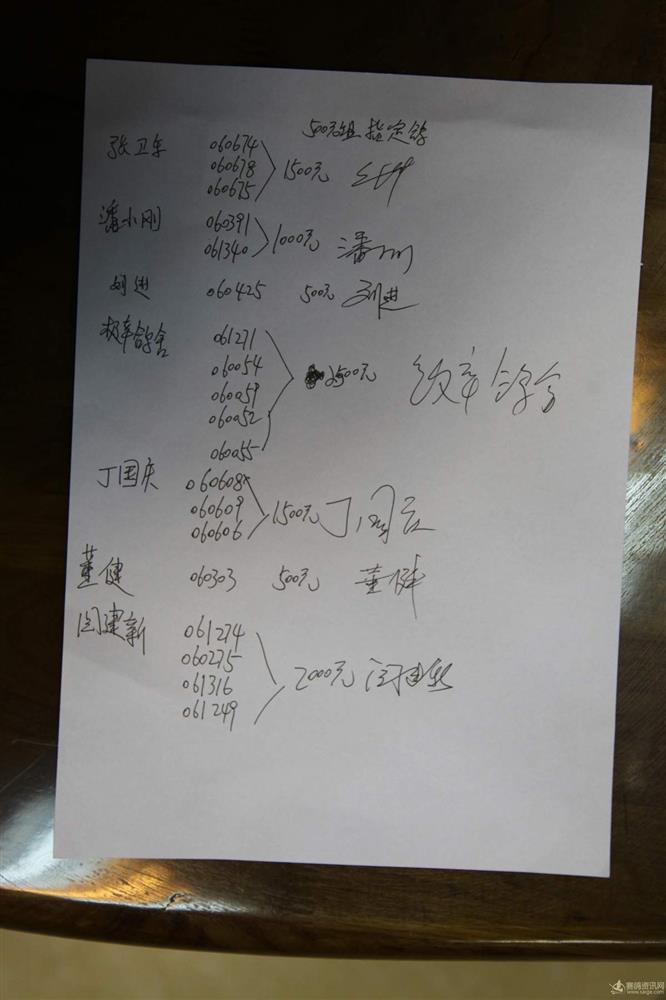 500元组指定鸽
张卫东 060674
060678 1500元
060675
潘小刚 060391
061340 1000元 潘刚
刘进 060425 500元 刘进
鸽舍 061271
060054
060059 2500元 鸽舍
060052
060055
丁国庆 060608
060609 1500元 丁国庆
060606
董健 060303 500元 董健
闫建新 061274
060275
061316 2000元 闫建新
061249
赛鸽资讯网
www.saige.com